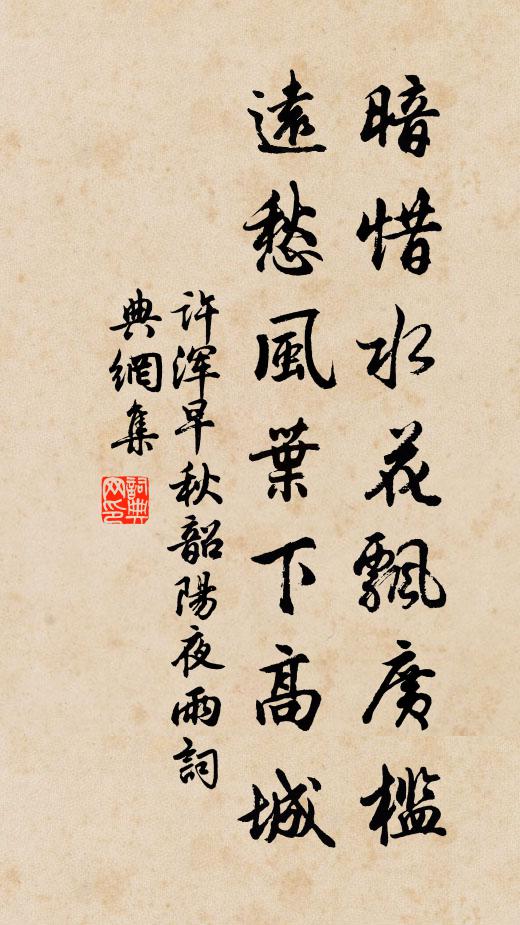 暗惜水花飄廣檻
遠愁風葉下高城
許浑早秋韶陽夜雨詞
典網集
詞典
网印